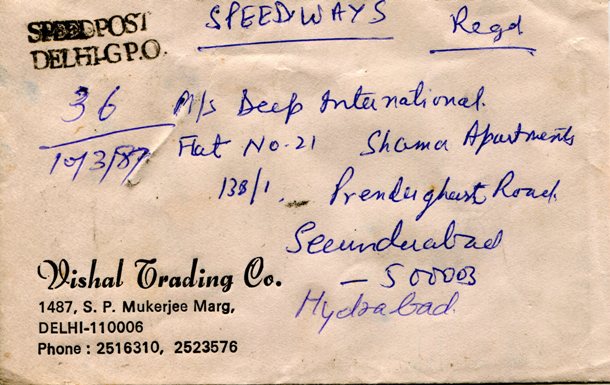 SPEEDPOST
DELHI-G P.O.
SPEEDWAYS
Regd
36
10/3/87
M/s Deep International.
Flat No. 21 Shama Apartments
138/1, Prenderghast Road
Secunderabad
— 500003
Hyderabad
Vishal Trading Co.
1487, S. P. Mukerjee Marg,
DELHI-110006
Phone : 2516310, 2523576